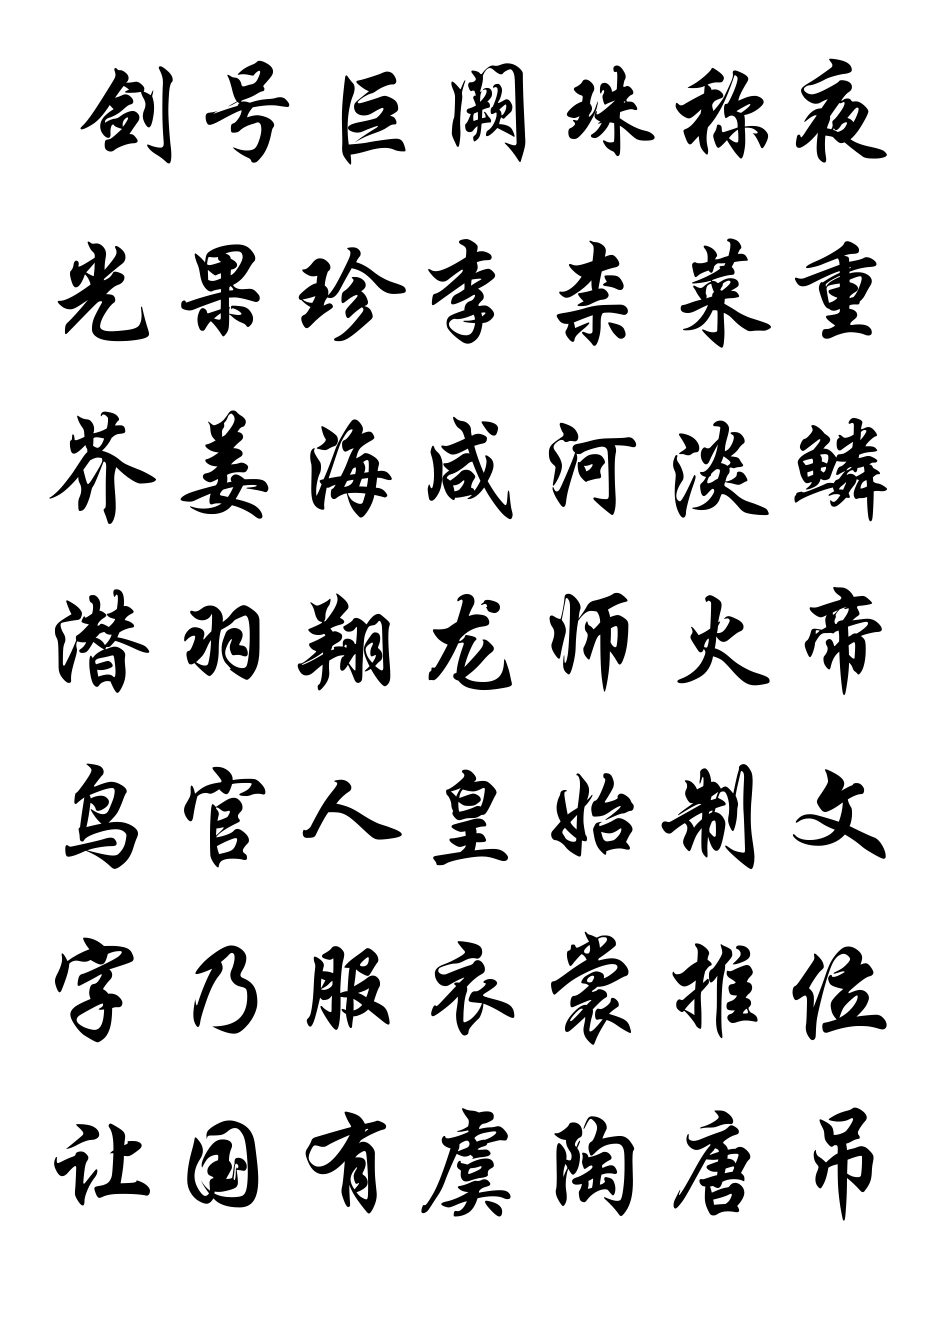 剑号巨阙珠称夜
光果珍李柰菜重
芥姜海咸河淡鳞
潜羽翔龙师火帝
鸟官人皇始制文
字乃服衣裳推位
让国有虞陶唐吊